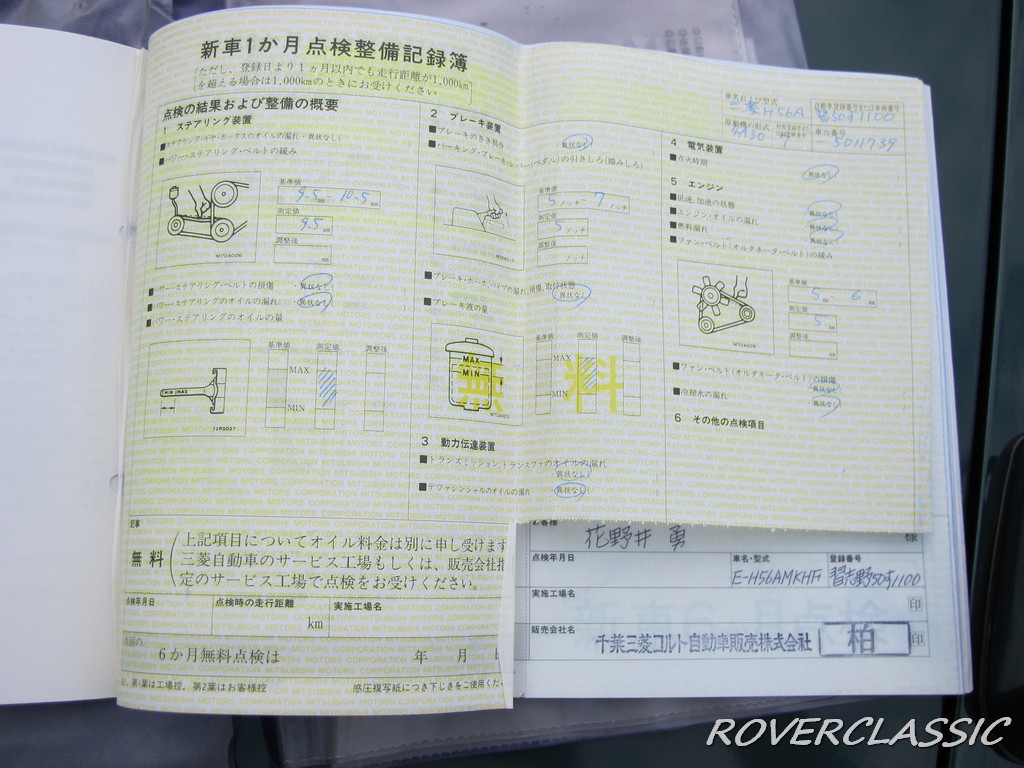 新車1か月点検整備記録簿
ただし、登録日より1ヵ月以内でも走行距離が1,000km
を超える場合は1,000kmのときにお受けください
点検の結果および整備の概要
1 ステアリング装置
■ステアリング・ギヤ・ボックスのオイルの漏れ・異状なし(
■パワー・ステアリング・ベルトの緩み
基準値
9.5mm 10.5mm
測定値
9.5mm
調整後
M70A006
■パワー・ステアリング・ベルトの損傷 ・異状なし(
■パワー・ステアリングのオイルの漏れ ・異状なし(
■パワー・ステアリングのオイルの量
基準値 測定値 調整後
MAX
MIN
MIN MAX
72R0027
2 ブレーキ装置
■ブレーキのきき具合 ・異状なし(
■パーキング・ブレーキ・レバー(ペダル)の引きしろ(踏みしろ)
基準値
5ノッチ~7ノッチ
測定値
5ノッチ
調整後
ノッチ
■ブレーキ・ホース、パイプの漏れ、損傷、取付状態
・異状なし(
■ブレーキ液の量
基準値 測定値 調整後
MAX
MIN
MAX
MIN
無料
3 動力伝達装置
■トランスミッション、トランスファのオイルの漏れ
・異状なし(
■デファレンシャルのオイルの漏れ ・異状なし(
車名および型式
三菱H56A
自動車登録番号または車両番号
習50す1100
原動機の型式
4A30
車台番号
-5011739
4 電気装置
■点火時期 ・異状なし(
5 エンジン
■低速、加速の状態 ・異状なし(
■エンジン・オイルの漏れ ・異状なし(
■燃料漏れ ・異状なし(
■ファン・ベルト(オルタネータ・ベルト)の緩み
基準値
5mm 6mm
測定値
5mm
調整後
M70A008
■ファン・ベルト(オルタネータ・ベルト)の損傷
・異状なし(
■冷却水の漏れ ・異状なし(
6 その他の点検項目
MITSUBISHI MOTORS CORPORATION
記事
無料
上記項目についてオイル料金は別に申し受けます
三菱自動車のサービス工場もしくは、販売会社指
定のサービス工場で点検をお受けください。
点検年月日 点検時の走行距離 実施工場名
km
次回の
6か月無料点検は 年 月
第1葉は工場控、第2葉はお客様控 感圧複写紙につき下じきをご使用くだ
お客様
花野井 勇 様
点検年月日 車名・型式 登録番号
E-H56AMKHFi 習志野50す1100
実施工場名
印
販売会社名
千葉三菱コルト自動車販売株式会社 柏 印
ROVERCLASSIC